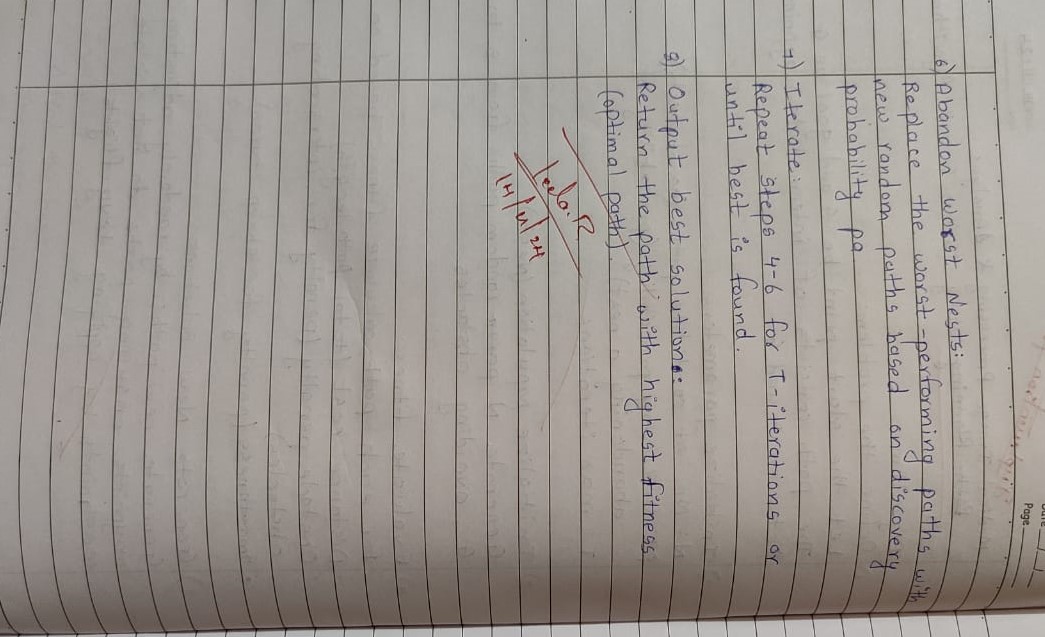 Date / /
Page
6) Abandon worst Nests:
Replace the worst-performing paths with
new random paths based on discovery
probability pa
7) Iterate:
Repeat steps 4-6 for T-iterations or
until best is found.
8) Output best solution:
Return the path with highest fitness
(optimal path).